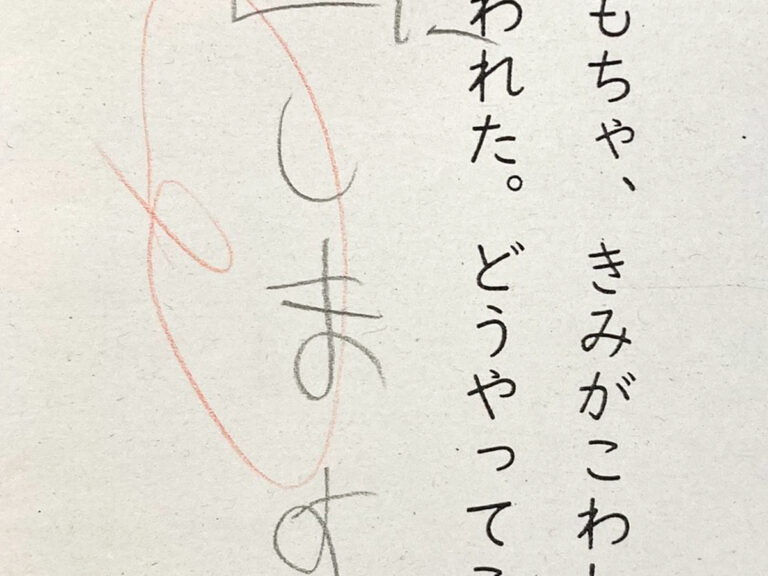 もちゃ、きみがこわ
われた。どうやって
します